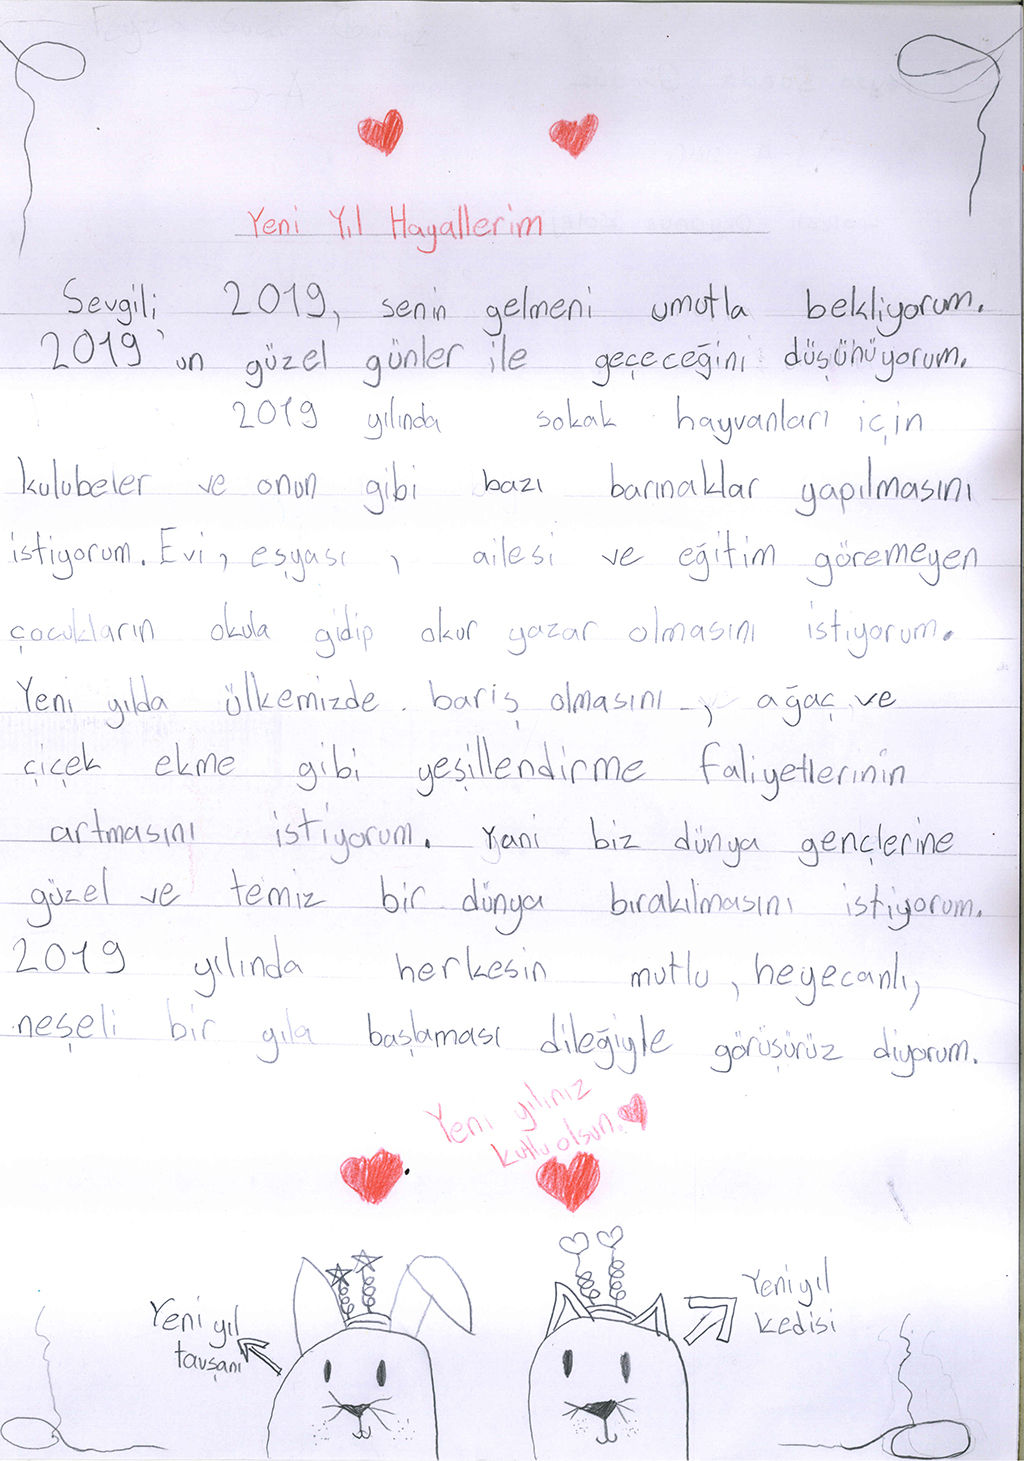 Yeni Yıl Hayallerim
Sevgili 2019, senin gelmeni umutla bekliyorum.
2019'un güzel günler ile geçeceğini düşünüyorum.
2019 yılında sokak hayvanları için
kulubeler ve onun gibi bazı barınaklar yapılmasını
istiyorum. Evi, eşyası, ailesi ve eğitim göremeyen
çocukların okula gidip okur yazar olmasını istiyorum.
Yeni yılda ülkemizde barış olmasını, ağaç ve
çiçek ekme gibi yeşillendirme faliyetlerinin
artmasını istiyorum. Yani biz dünya gençlerine
güzel ve temiz bir dünya bırakılmasını istiyorum.
2019 yılında herkesin mutlu, heyecanlı,
neşeli bir yıla başlaması dileğiyle görüşürüz diyorum.
Yeni yılınız
kutlu olsun.
Yeni yıl
tavşanı
Yeni yıl
kedisi